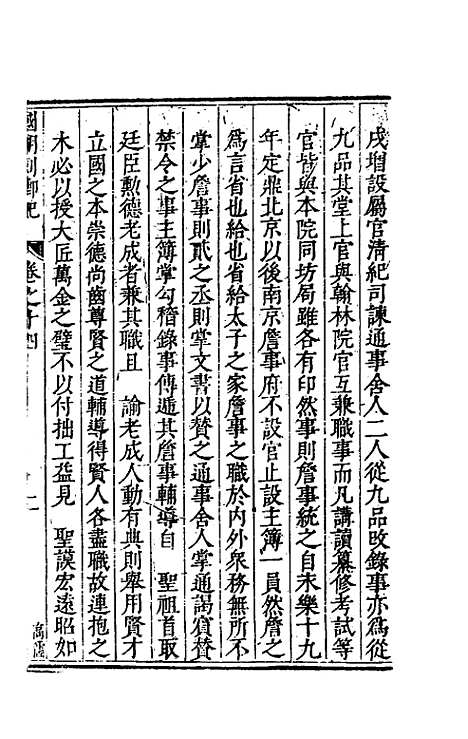 戌増設屬官清紀司諫通事舍人二人從九品改錄事亦爲從
九品其堂上官與翰林院官互兼職事而凡講讀纂修考試等
官皆與本院同坊局雖各有印然事則詹事統之自永樂十九
年定鼎北京以後南京詹事府不設官止設主簿一員然詹之
爲言省也給也省給太子之家詹事之職於内外衆務無所不
掌少詹事則貳之丞則掌文書以贊之通事舍人掌通謁賓贊
禁令之事主簿掌勾稽錄事傳遞其詹事輔導自　聖祖首取
廷臣勲德老成者兼其職且　諭老成人動有典則舉用賢才
立國之本崇德尚齒尊賢之道輔導得賢人各盡職故連抱之
木必以授大匠萬金之璧不以付拙工益見　聖謨宏遠昭如
國朝列卿紀
卷之十四
二